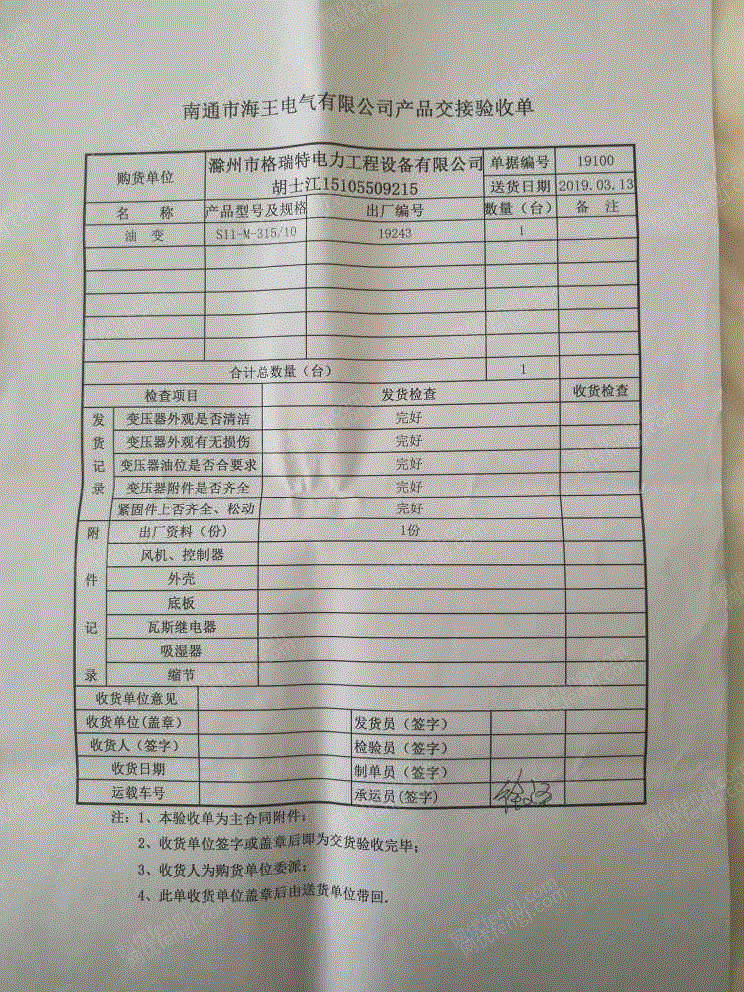 南通市海王电气有限公司产品交接验收单
购货单位 滁州市格瑞特电力工程设备有限公司 单据编号 19100
胡士江15105509215 送货日期 2019.03.13
名 称 产品型号及规格 出厂编号 数量（台） 备 注
油 变 S11-M-315/10 19243 1
合计总数量（台） 1
检查项目 发货检查 收货检查
发货记录
变压器外观是否清洁 完好
变压器外观有无损伤 完好
变压器油位是否合要求 完好
变压器附件是否齐全 完好
紧固件上否齐全、松动 完好
附件记录
出厂资料（份） 1份
风机、控制器
外壳
底板
瓦斯继电器
吸湿器
缩节
收货单位意见
收货单位(盖章) 发货员（签字）
收货人（签字） 检验员（签字）
收货日期 制单员（签字）
运载车号 承运员(签字)
注：1、本验收单为主合同附件；
2、收货单位签字或盖章后即为交货验收完毕；
3、收货人为购货单位委派；
4、此单收货单位盖章后由送货单位带回.